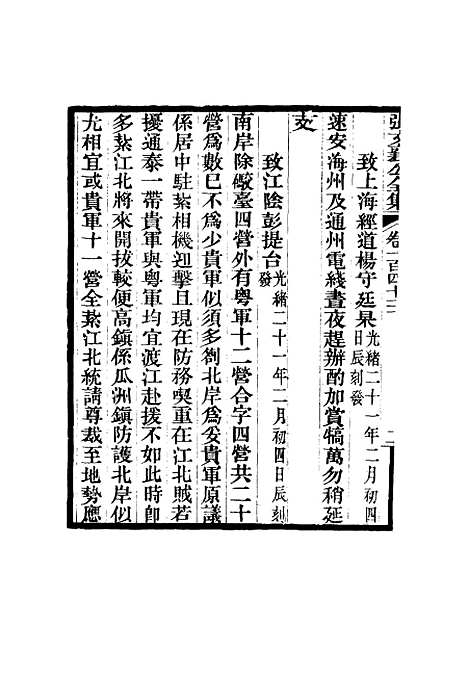 張文襄公全集 卷一百四十三 二
致上海經道楊守廷杲 光緒二十一年二月初四日辰刻發
速安海州及通州電綫晝夜趕辦酌加賞犒萬勿稍延
支
致江陰彭提台 光緒二十一年二月初四日辰刻發
南岸除礮臺四營外有粵軍十二營合字四營共二十
營爲數已不爲少貴軍似須多劄北岸爲妥貴軍原議
係居中駐紮相機迎擊且現在防務喫重在江北賊若
擾通泰一帶貴軍與粵軍均宜渡江赴援不如此時卽
多紮江北將來開拔較便高鎮係瓜洲鎮防護北岸似
尤相宜或貴軍十一營全紮江北統請尊裁至地勢應